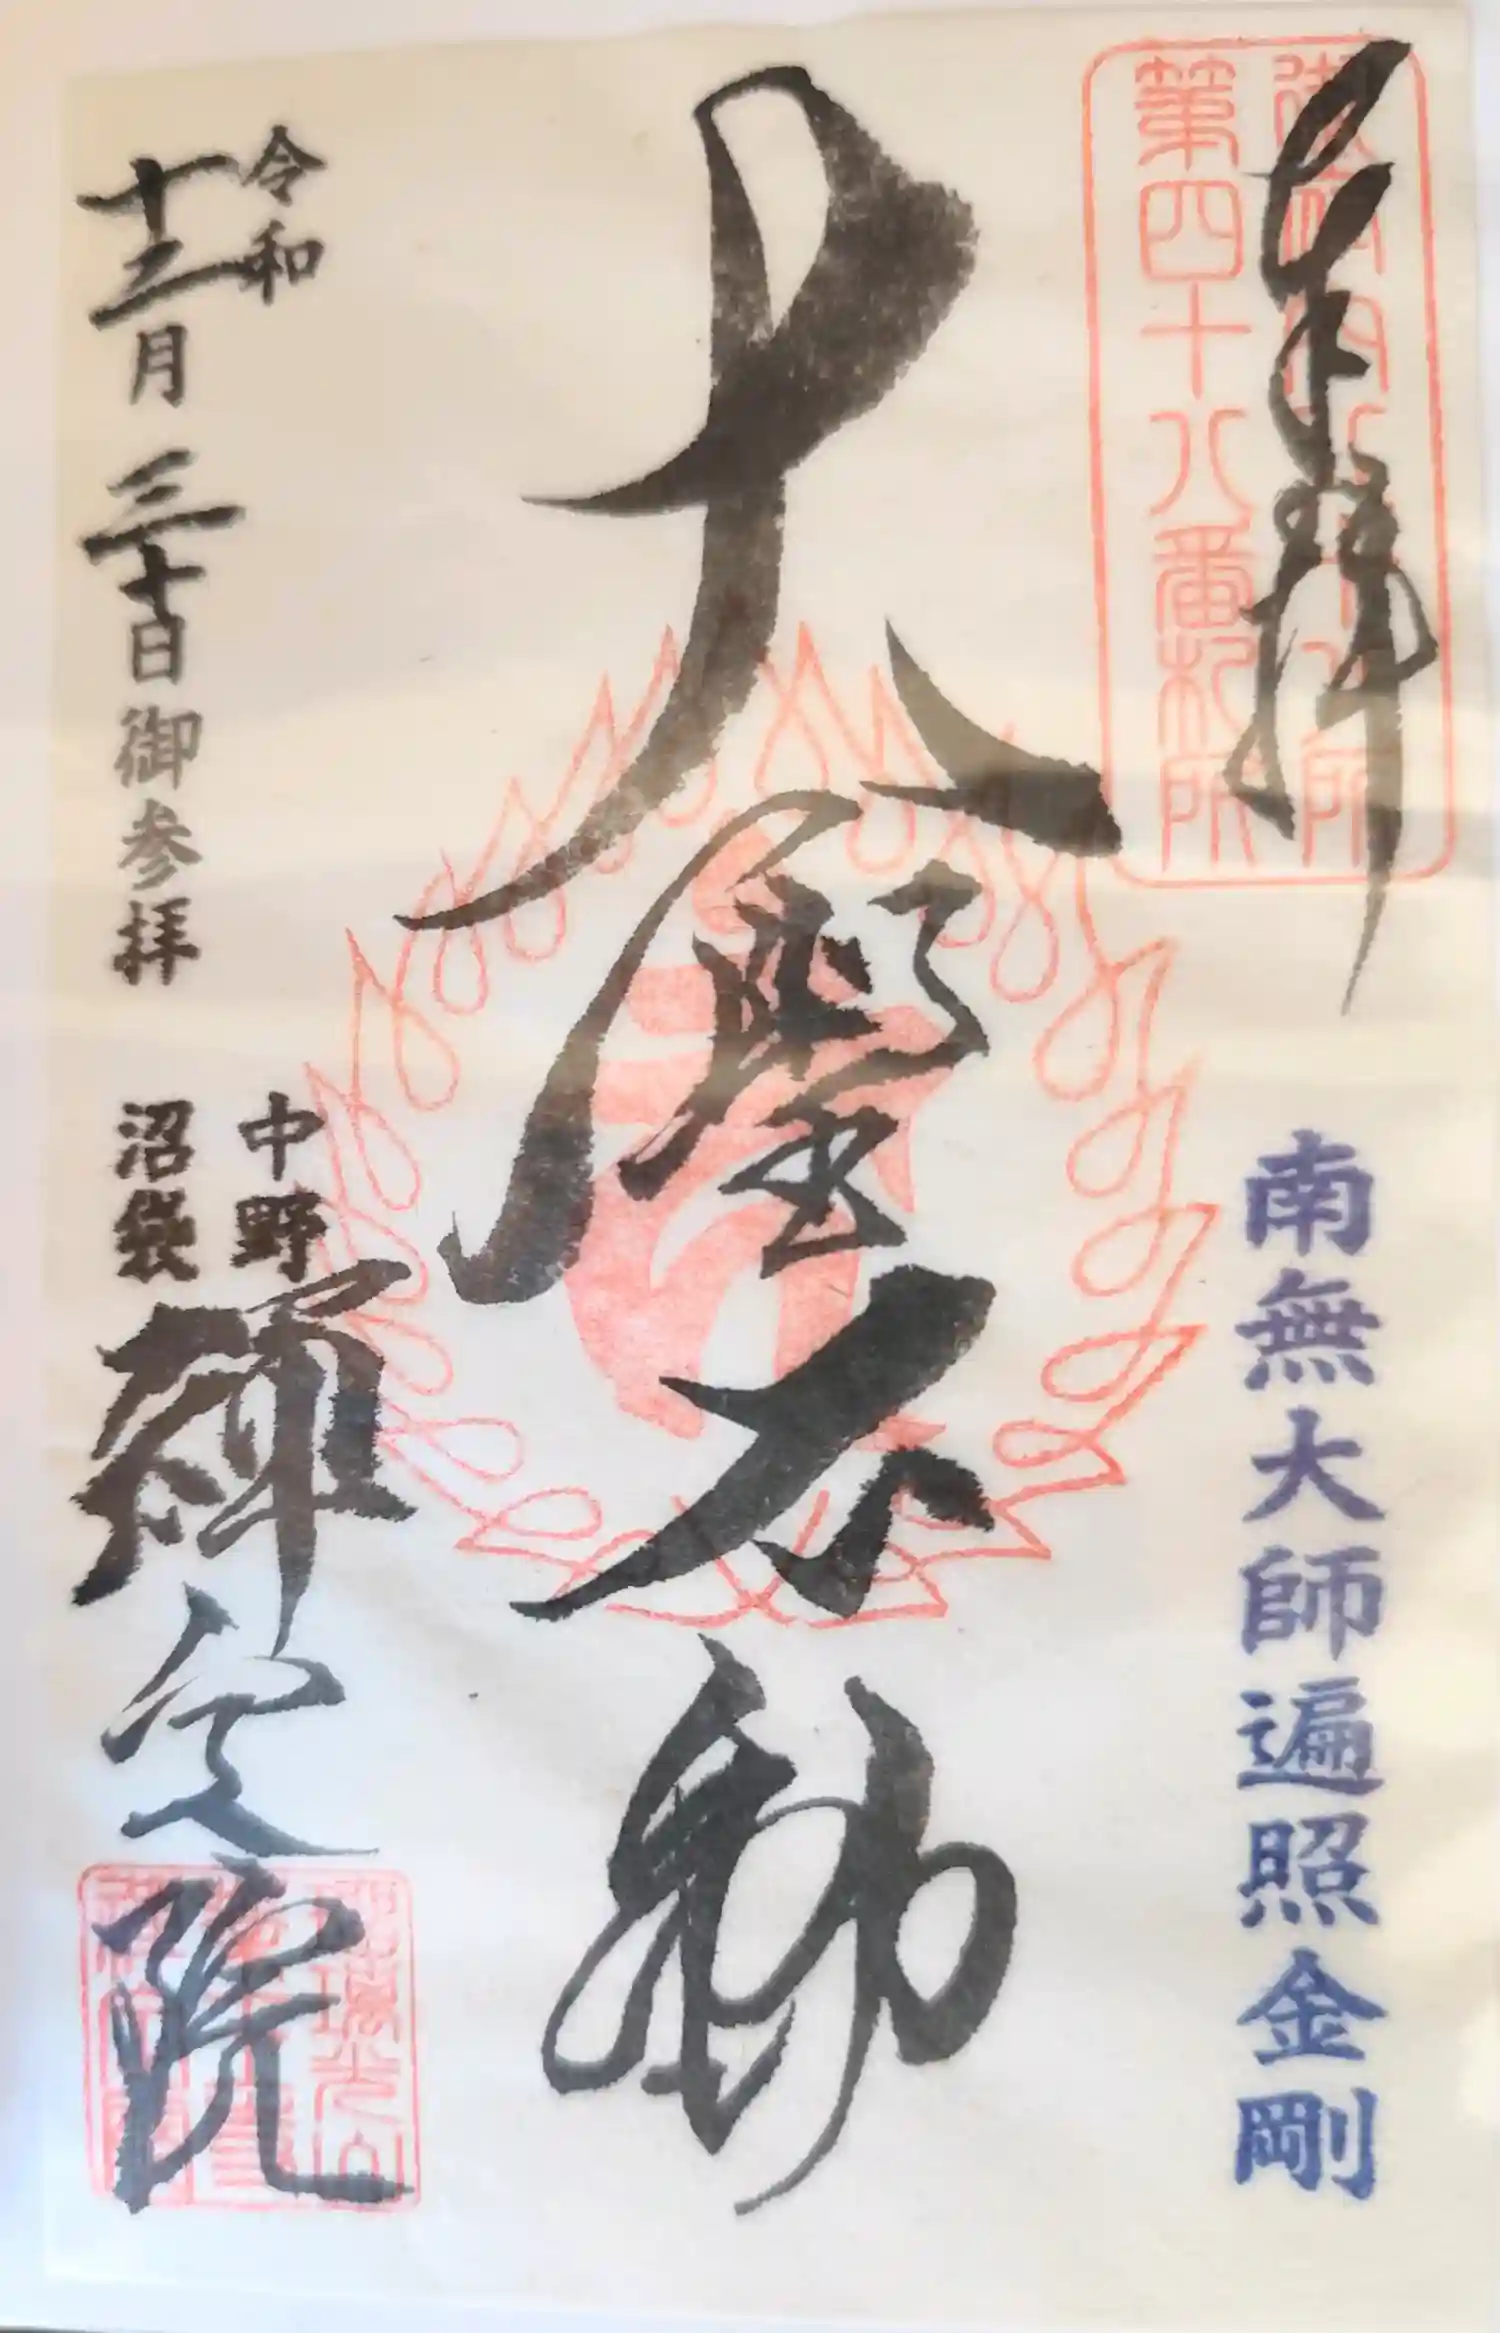 奉拝
御府内八十八ヶ所
第四十八番札所
南無大師遍照金剛
大聖不動
令和
十二月三十日御参拝
中野
沼袋
禅定院
瑠璃光山